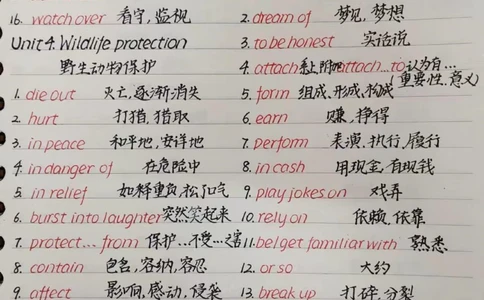 16. watch over 看守,监视
Unit 4. Wildlife protection
野生动物保护
1. die out 灭亡,逐渐消失
2. hurt 打猎,猎取
3. in peace 和平地,安详地
4. in danger of 在危险中
5. in relief 如释重负,松了口气
6. burst into laughter 突然笑起来
7. protect...from 保护...不受...之害
8. contain 包含,容纳,容忍
9. affect 影响,感动,侵袭
2. dream of 梦见,梦想
3. to be honest 实话说
4. attach 系上,附加 attach...to 认为有...
(重要性,意义)
5. form 组成,形成,构成
6. earn 赚,挣得
7. perform 表演,执行,履行
8. in cash 用现金,有现钱
9. play jokes on 戏弄
10. rely on 依赖,依靠
11. be/get familiar with 熟悉
12. or so 大约
13. break up 打碎,分裂